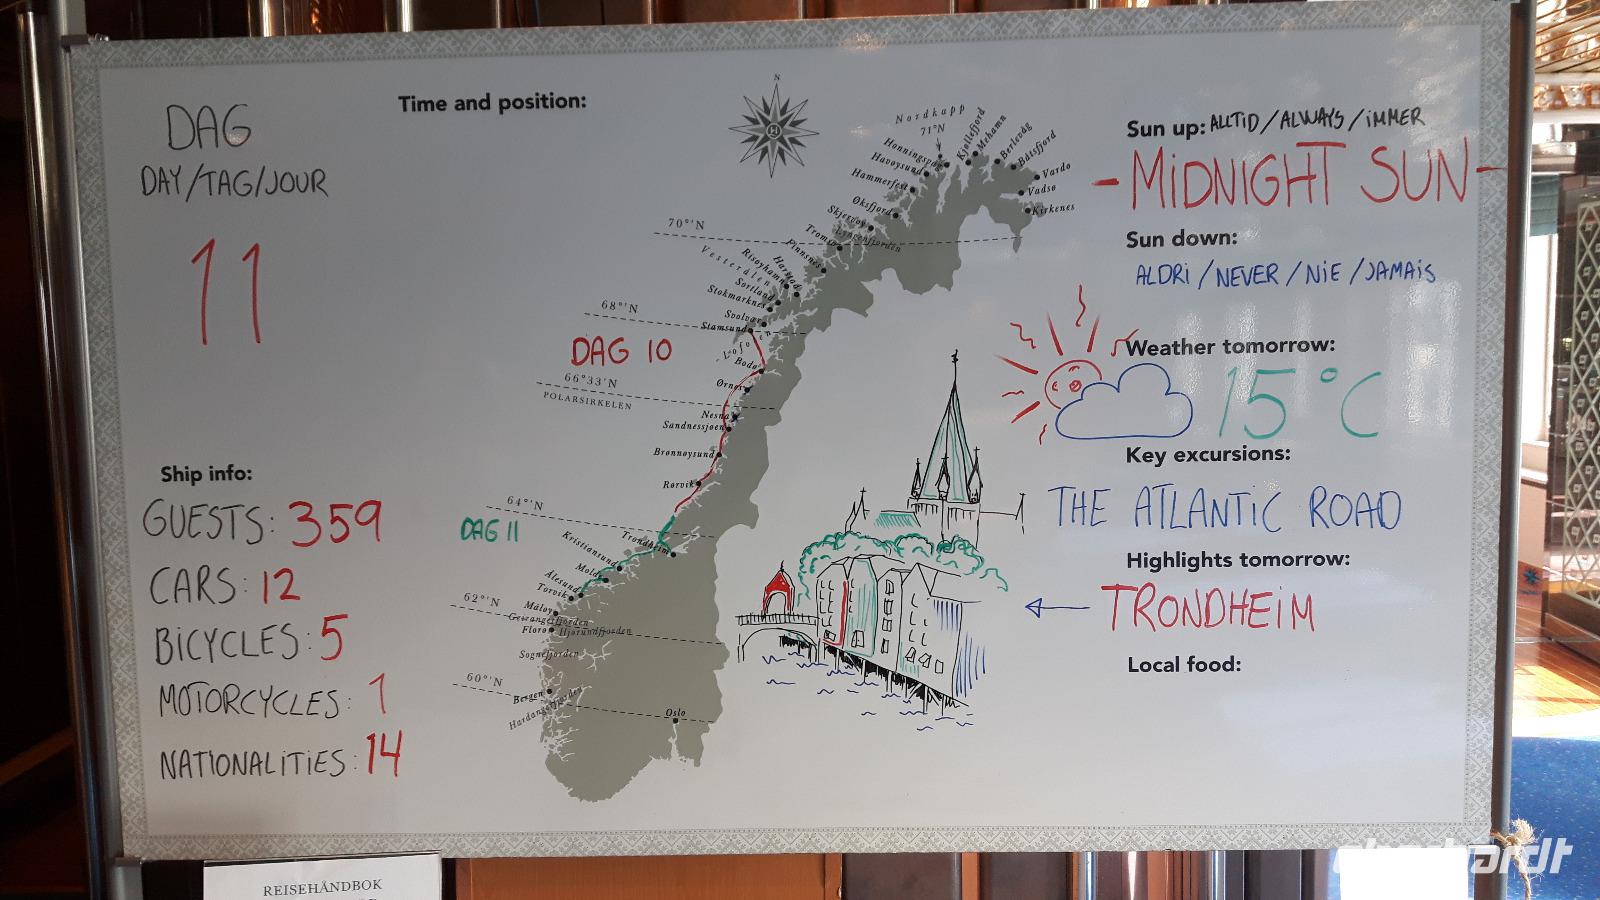 DAG
DAY/TAG/JOUR
11
Time and position:
N
Nordkapp
71°N
Honningsvåg
Havøysund
Hammerfest
Kjøllefjord
Mehamn
Berlevåg
Båtsfjord
Vardø
Vadsø
Kirkenes
Øksfjord
Skjervøy
Lyngenfjorden
70°'N
Tromsø
Finnsnes
Harstad
Risøyhamn
Vesterålen
Sortland
Stokmarknes
68°'N
Svolvær
Stamsund
Lofoten
DAG 10
Bodø
Ørnes
66°33'N
POLARSIRKELEN
Nesna
Sandnessjøen
Brønnøysund
Rørvik
64°'N
DAG 11
Trondheim
Kristiansund
Molde
Ålesund
Torvik
62°'N
Måløy
Geirangerfjorden
Florø
Hjørundfjorden
Sognefjorden
60°'N
Bergen
Hardangerfjorden
Oslo
Ship info:
GUESTS: 359
CARS: 12
BICYCLES: 5
MOTORCYCLES: 1
NATIONALITIES: 14
Sun up: ALLTID/ALWAYS/IMMER
- MIDNIGHT SUN -
Sun down:
ALDRI/NEVER/NIE/JAMAIS
Weather tomorrow:
15°C
Key excursions:
THE ATLANTIC ROAD
Highlights tomorrow:
TRONDHEIM
Local food:
REISEHÅNDBOK
eberhardt